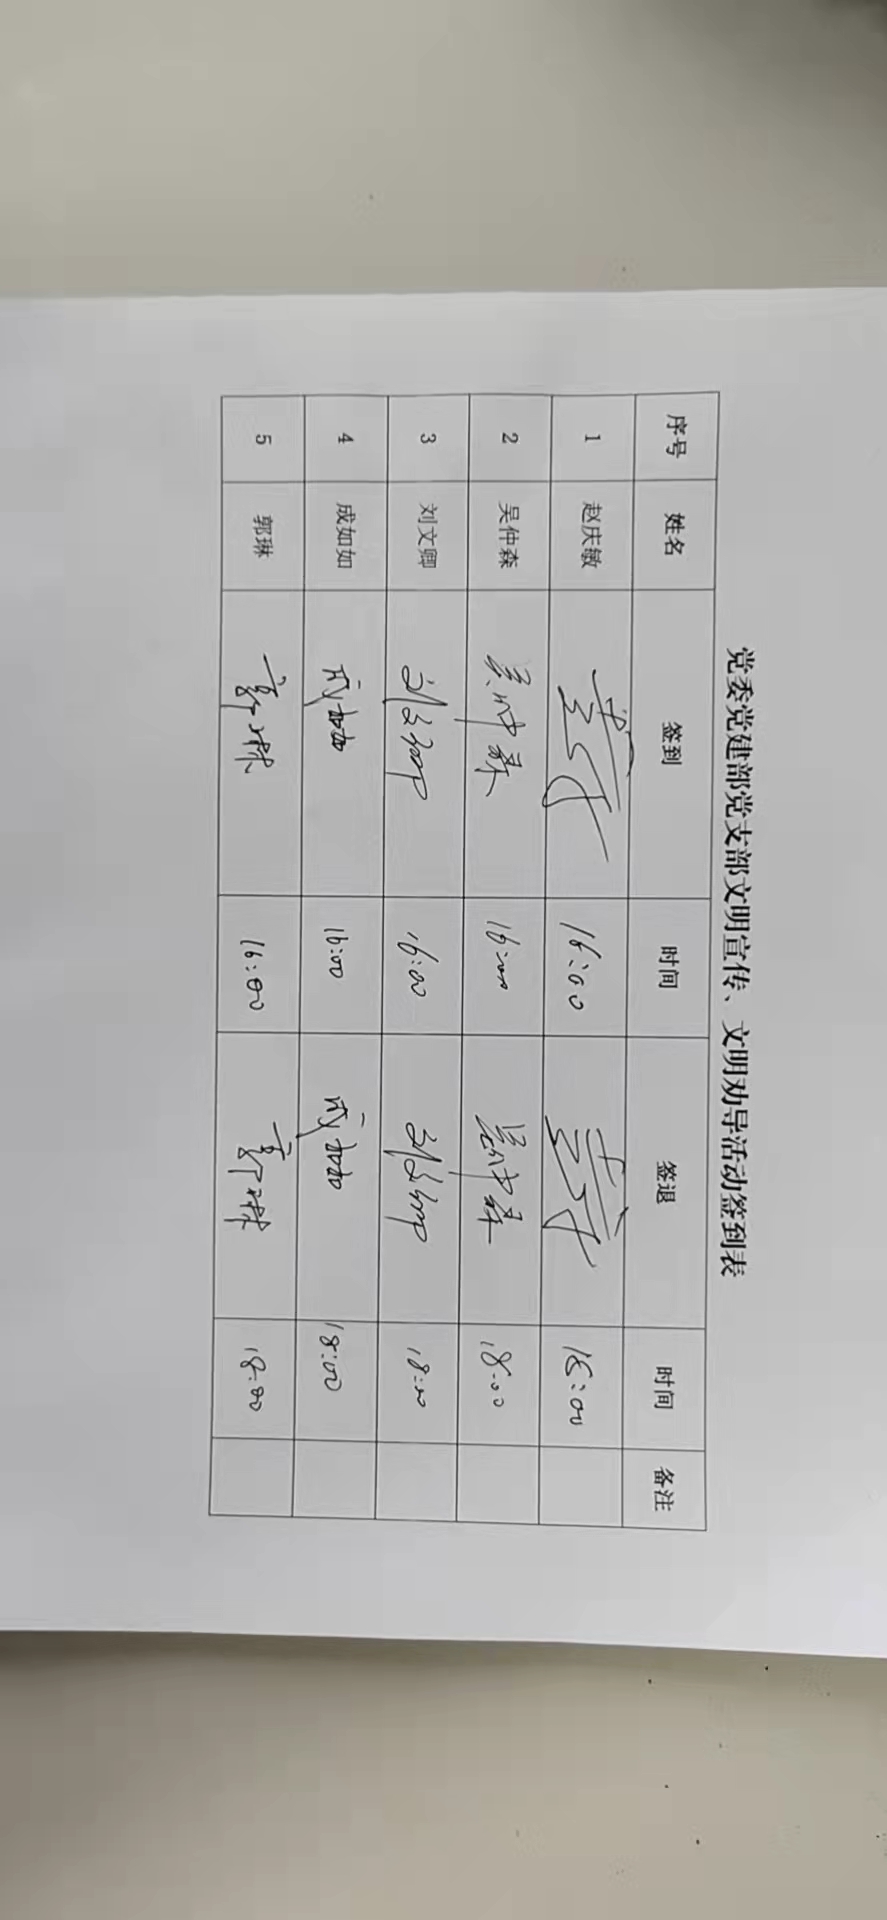 党委党建部党支部文明宣传、文明劝导活动签到表
序号 姓名 签到 时间 签退 时间 备注
1 赵庆敏 16:00 18:00
2 吴仲森 吴仲森 16:00 吴仲森 18:00
3 刘文卿 刘文卿 16:00 刘文卿 18:00
4 成如如 成如如 16:00 成如如 18:00
5 郭琳 郭琳 16:00 郭琳 18:00